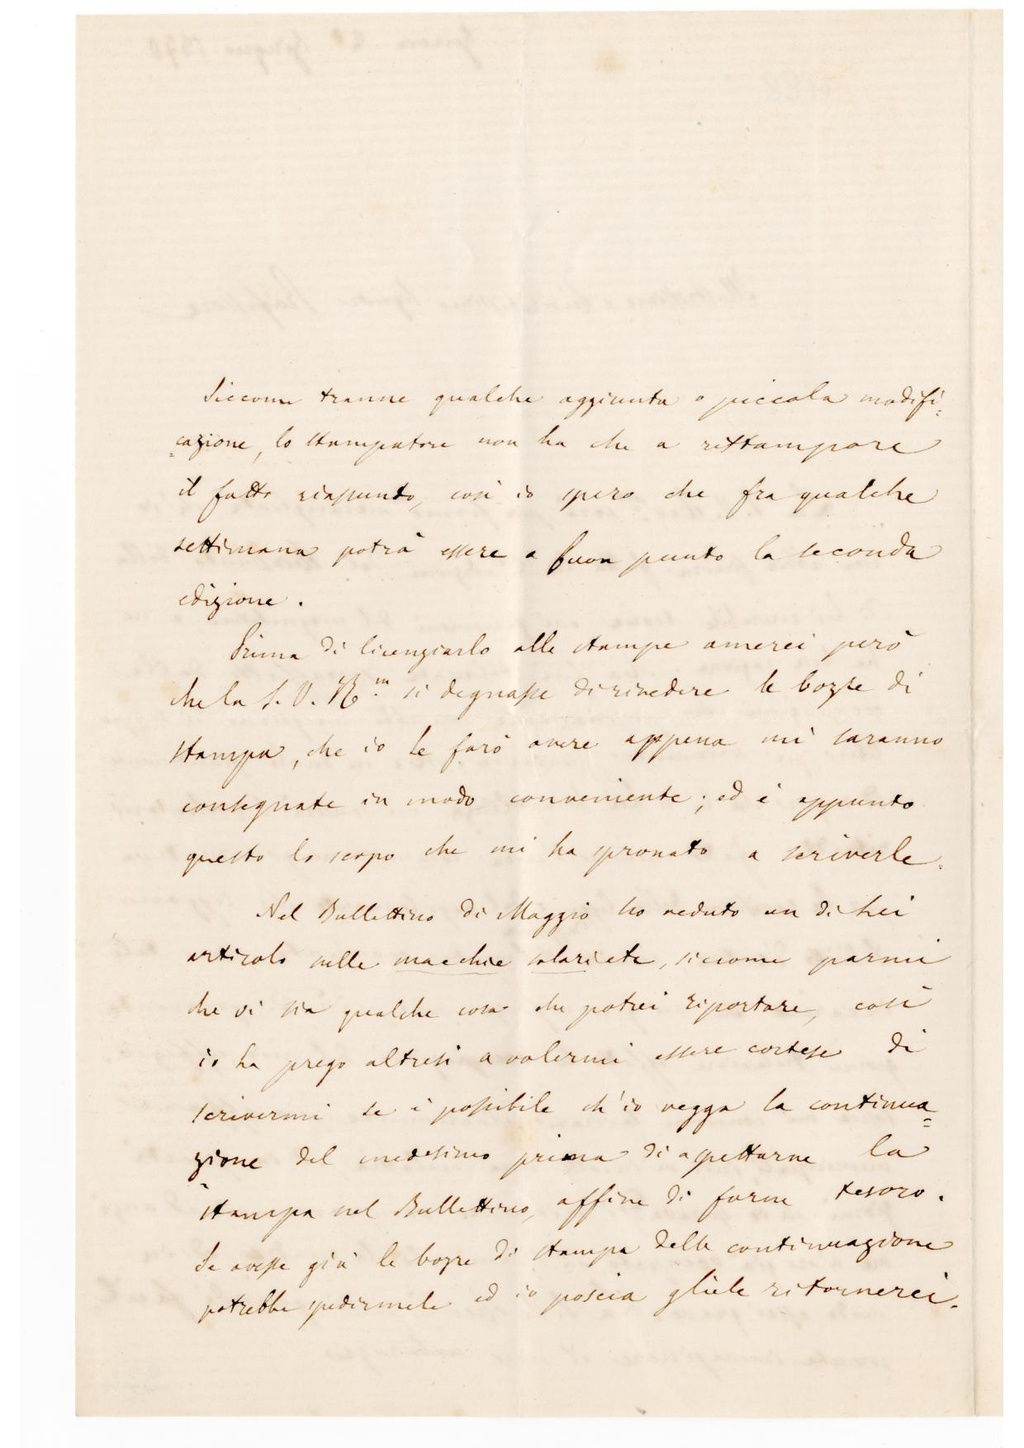 Siccome tranne qualche aggiunta o piccola modifi=
=cazione, lo stampatore non ha che a ristampare
il fatto riassunto, così io spero che fra qualche
settimana potrà essere a buon punto la seconda
edizione.
Prima di licenziarlo alle stampe amerei però
che la S. V. R.ma si degnasse di rivedere le bozze di
stampa, che io le farò avere appena mi saranno
consegnate in modo conveniente; ed è appunto
questo lo scopo che mi ha spronato a scriverle.
Nel Bullettino di Maggio ho veduto un di Lei
articolo sulle macchie solari ete, siccome parmi
che vi sia qualche cosa che potrei riportare, così
io La prego altresì a volermi essere cortese di
scrivermi se è possibile ch'io vegga la continua=
=zione del medesimo prima di aspettarne la
stampa nel Bullettino, affine di farne tesoro.
Se avesse già le bozze di stampa della continuazione
potrebbe spedirmele ed io poscia gliele ritornerei.